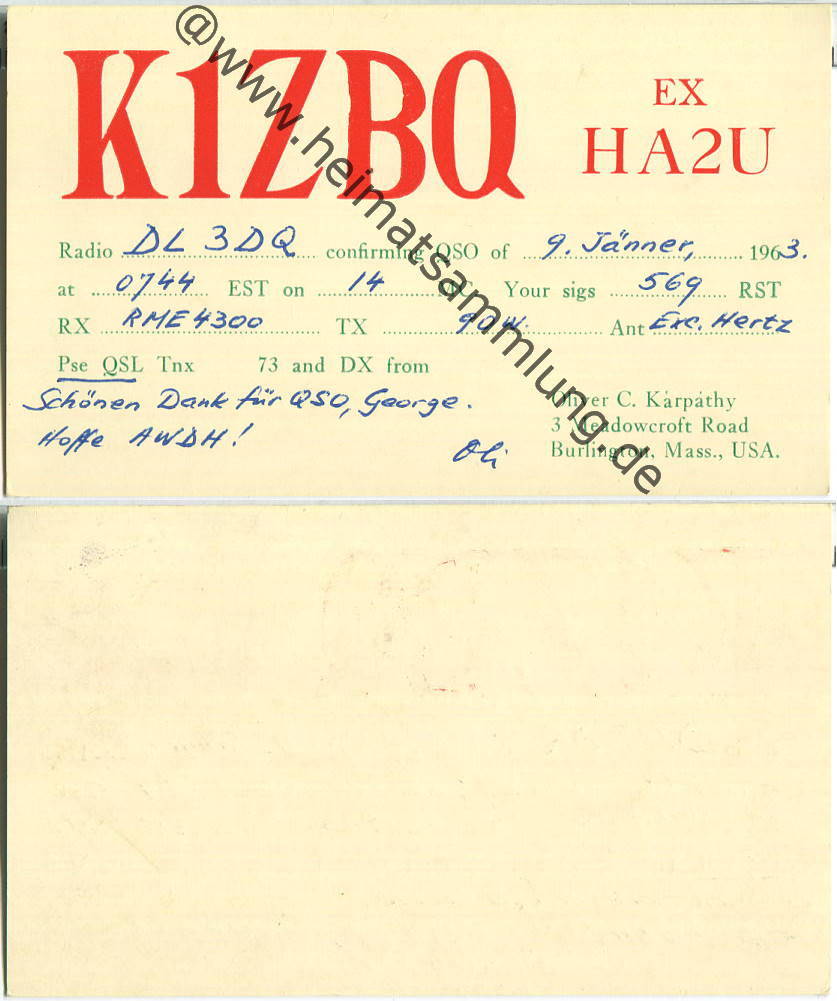 K1ZBQ
EX
HA2U
Radio DL 3DQ confirming QSO of 9. Jänner, 1963.
at 0744 EST on 14 Your sigs 569 RST
RX RME 4300 TX 90 W. Ant Exc. Hertz
Pse QSL Tnx 73 and DX from
Schönen Dank für QSO, George.
Hoffe AWDH!
Oli
Oliver C. Kárpáthy
3 Meadowcroft Road
Burlington, Mass., USA.
@www.heimatsammlung.de